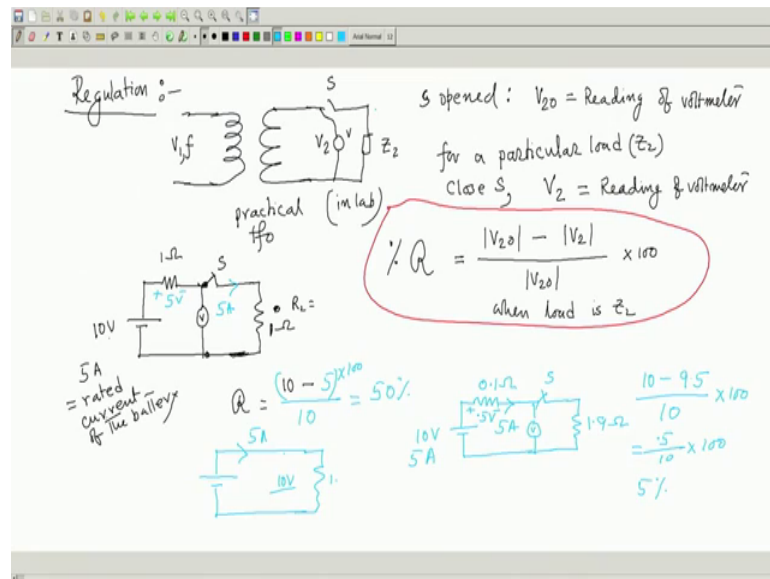 Arial Normal 12
Regulation :-
V₁, f
S
V₂
V
Z₂
practical (in lab)
tfo
S opened : V₂₀ = Reading of voltmeter
for a particular load (Z₂)
Close S, V₂ = Reading of voltmeter
% R = |V₂₀| - |V₂| / |V₂₀| × 100
when load is Z₂
1Ω
S
+ 5V -
5A
V
R_L =
1Ω
10V
5A
= rated
current
of the battery
R = (10 - 5) × 100 / 10 = 50%
5A
10V
1.
0.1Ω
S
+ .5V -
5A
V
1.9Ω
10V
5A
10 - 9.5 / 10 × 100
= .5 / 10 × 100
5%